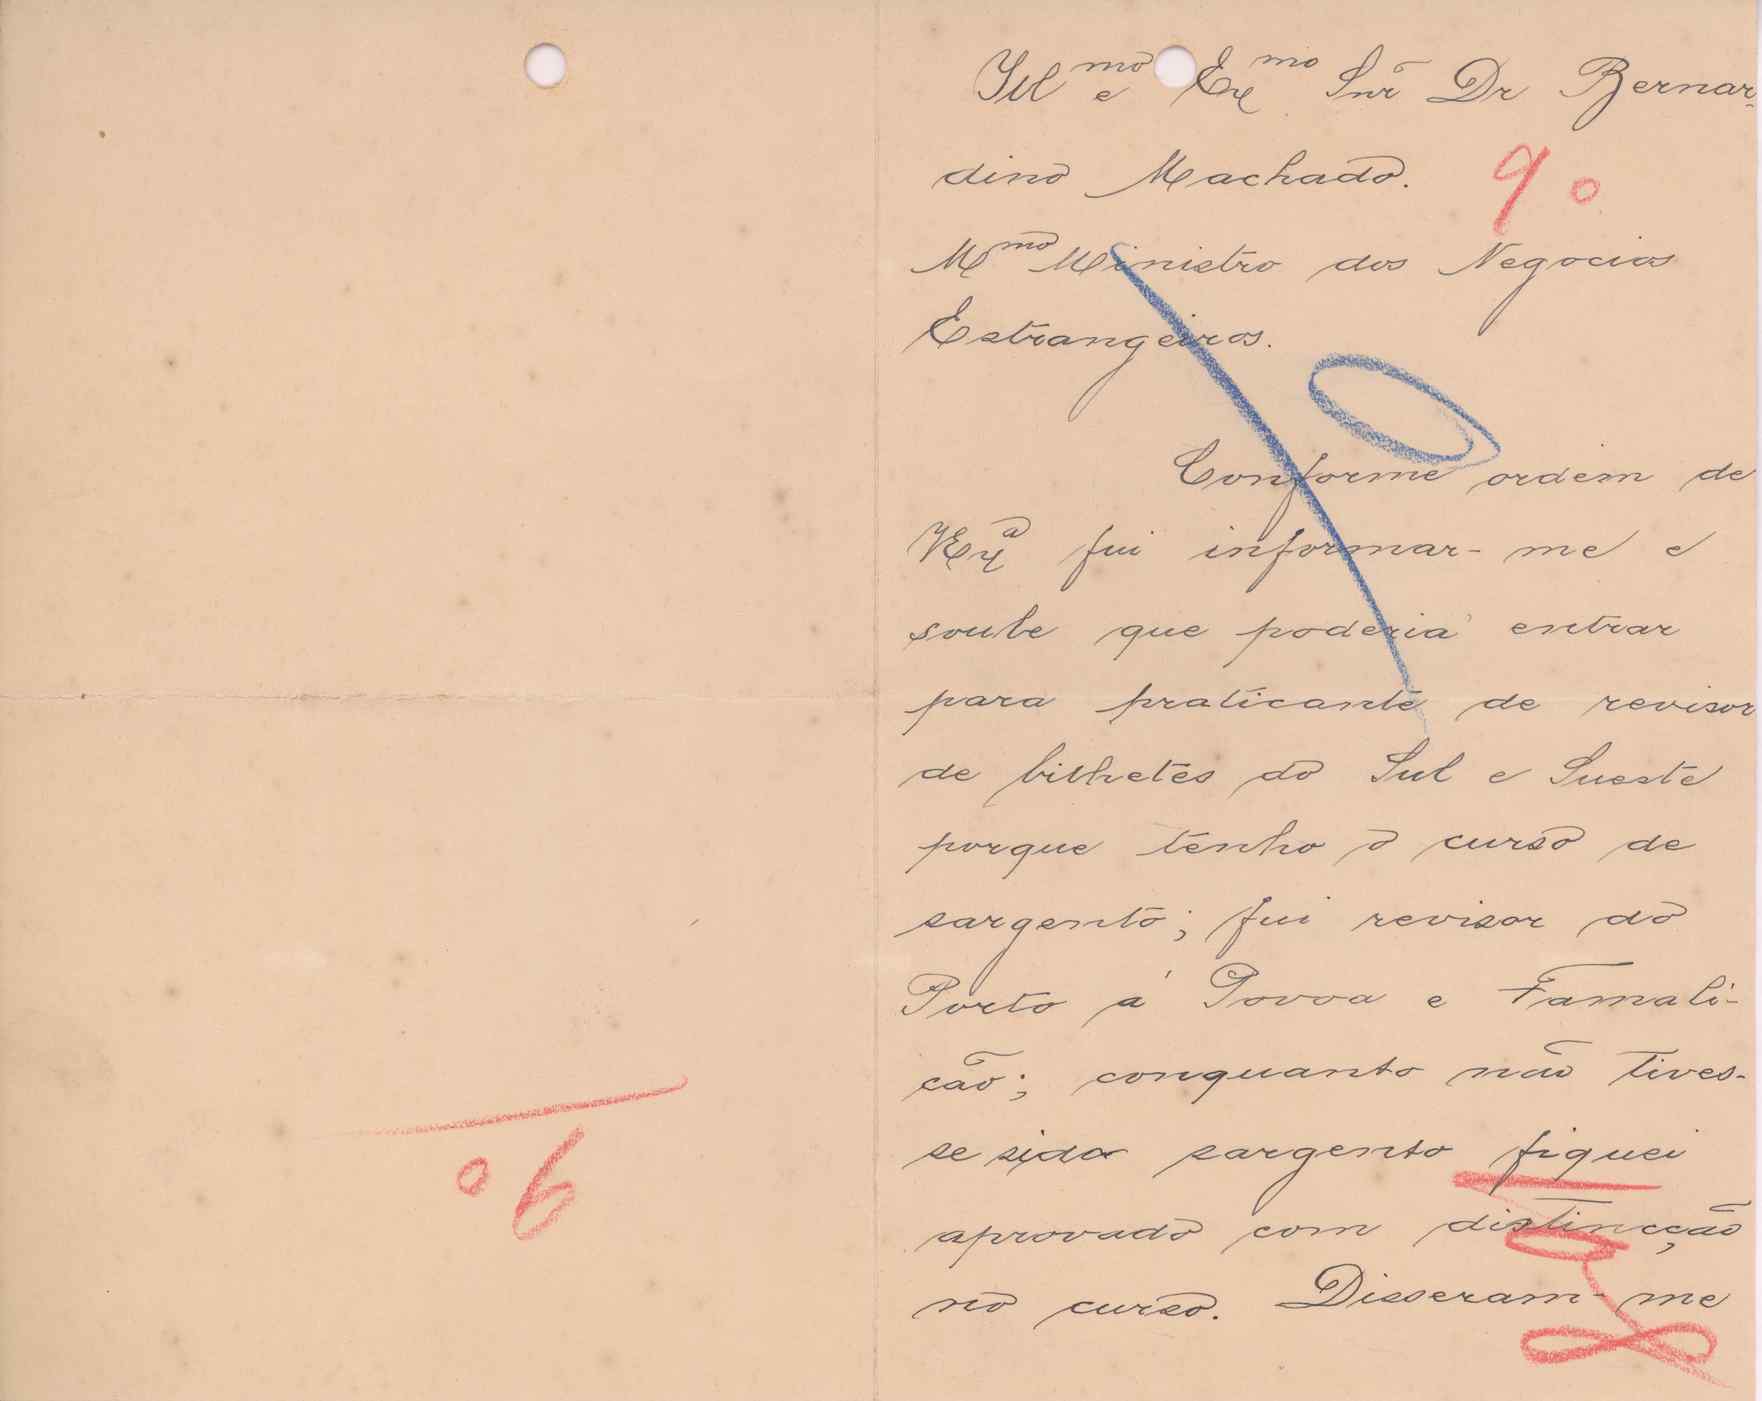 Ill^mo e Ex^mo Snr Dr Bernar-
dino Machado.
9º
M^mo Ministro dos Negocios
Estrangeiros.
Conforme ordem de
VEx^a fui informar-me e
soube que poderia entrar
para praticante de revisor
de bilhetes do Sul e Sueste
porque tenho o curso de
sargento; fui revisor do
Porto á Povoa e Famali-
cão; conquanto não tives-
se sido sargento fiquei
aprovado com distincção
no curso. Disseram-me